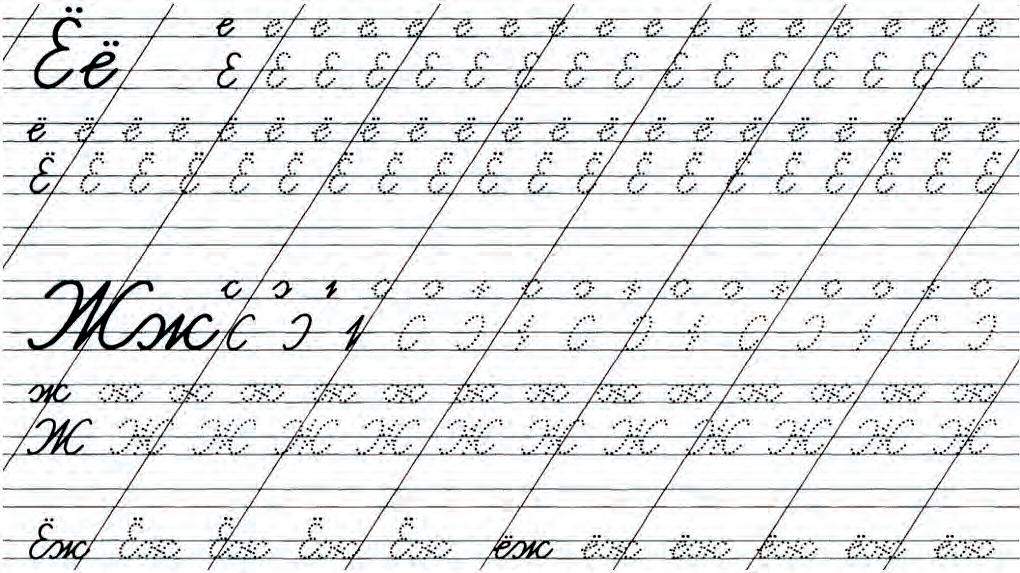 Ёё е е е е е е е е е е е е е е е е е
Е Е Е Е Е Е Е Е Е Е Е Е Е Е Е Е
ё ё ё ё ё ё ё ё ё ё ё ё ё ё ё ё ё ё ё ё ё
Ё Ё Ё Ё Ё Ё Ё Ё Ё Ё Ё Ё Ё Ё Ё Ё Ё Ё Ё Ё
Жж
ж ж ж ж ж ж ж ж ж ж ж ж ж ж
Ж Ж Ж Ж Ж Ж Ж Ж Ж Ж Ж Ж
Ёж Ёж Ёж Ёж Ёж ёж ёж ёж ёж ёж ёж